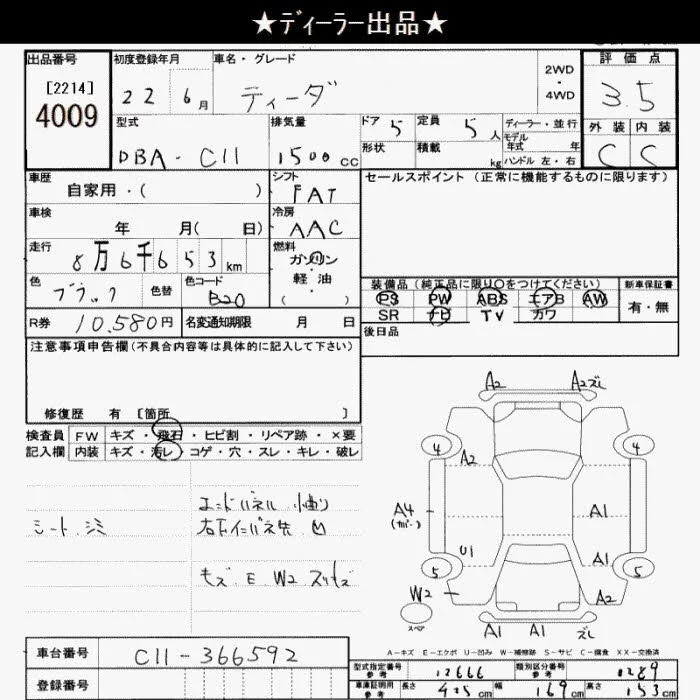 ★ディーラー出品★
出品番号 初度登録年月 車名・グレード 2WD・4WD 評価点
[2214]
4009
22 6月 ティーダ 3.5
型式 排気量 ドア 5 定員 5人 ディーラー・並行 外装 内装
モデル年式 年
DBA-C11 1500cc 形状 積載 kg ハンドル 左・右 C C
車歴 シフト セールスポイント（正常に機能するものに限ります）
自家用・( ) FAT
車検 冷房
年 月( 日) AAC
走行 燃料
8万6千653km ガソリン
軽油
( )
色 色替 色コード
ブラック B20
装備品（純正品に限り○をつけてください） 新車保証書
PS PW ABS エアB AW 有・無
SR ナビ TV カワ
R券 10,580円 名変通知期限 月 日
後日品
注意事項申告欄(不具合内容等は具体的に記入して下さい)
修復歴 有 [箇所 ]
検査員 FW キズ・飛石・ヒビ割・リペア跡・×要
記入欄 内装 キズ・汚レ・コゲ・穴・スレ・キレ・破レ
シート シミ
エンドパネル 小曲り
右下インパネ先 凹
キズ E W2 スリキズ
A2 A2ズレ
4 4
A2
A4 A1
(カバー)
U1 A1
5 5
W2 A2
スペア
A1 A1 ズレ
A－キズ E－エクボ U－凹み W－補修跡 S－サビ C－腐食 XX－交換済
車台番号 C11-366592
登録番号
型式指定番号 参考 12666 類別区分番号 参考 0289
車庫証明用 参考 長さ 425cm 幅 169cm 高さ 153cm